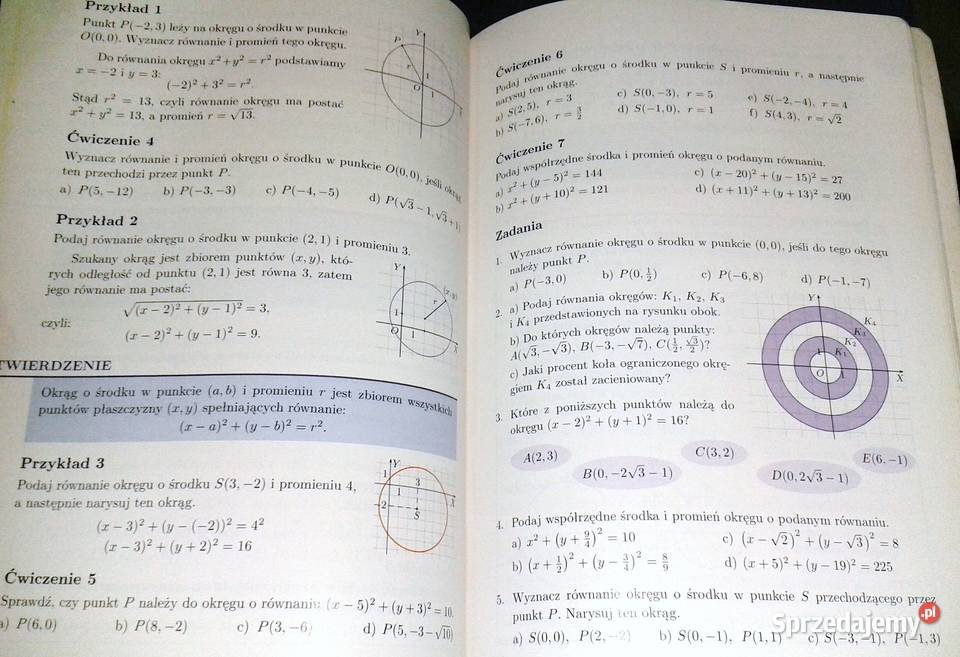 Przykład 1
Punkt P(−2, 3) leży na okręgu o środku w punkcie
O(0, 0). Wyznacz równanie i promień tego okręgu.
Do równania okręgu x² + y² = r² podstawiamy
x = −2 i y = 3:
(−2)² + 3² = r².
Stąd r² = 13, czyli równanie okręgu ma postać
x² + y² = 13, a promień r = √13.
P
r
Y
1
O
1
X
Ćwiczenie 4
Wyznacz równanie i promień okręgu o środku w punkcie O(0, 0), jeśli okrąg
ten przechodzi przez punkt P.
a) P(5, −12) b) P(−3, −3) c) P(−4, −5) d) P(√3 − 1, √3 + 1)
Przykład 2
Podaj równanie okręgu o środku w punkcie (2, 1) i promieniu 3.
Szukany okrąg jest zbiorem punktów (x, y), któ-
rych odległość od punktu (2, 1) jest równa 3, zatem
jego równanie ma postać:
√((x − 2)² + (y − 1)²) = 3,
czyli:
(x − 2)² + (y − 1)² = 9.
Y
(x, y)
r
1
O
1
X
TWIERDZENIE
Okrąg o środku w punkcie (a, b) i promieniu r jest zbiorem wszystkich
punktów płaszczyzny (x, y) spełniających równanie:
(x − a)² + (y − b)² = r².
Przykład 3
Podaj równanie okręgu o środku S(3, −2) i promieniu 4,
a następnie narysuj ten okrąg.
(x − 3)² + (y − (−2))² = 4²
(x − 3)² + (y + 2)² = 16
Y
1
1
3
X
−2
S
Ćwiczenie 5
Sprawdź, czy punkt P należy do okręgu o równaniu (x − 5)² + (y + 3)² = 10.
a) P(6, 0) b) P(8, −2) c) P(3, −6) d) P(5, −3 − √10)
Ćwiczenie 6
Podaj równanie okręgu o środku w punkcie S i promieniu r, a następnie
narysuj ten okrąg.
a) S(2, 5), r = 3 c) S(0, −3), r = 5 e) S(−2, −4), r = 4
b) S(−7, 6), r = 3/2 d) S(−1, 0), r = 1 f) S(4, 3), r = √2
Ćwiczenie 7
Podaj współrzędne środka i promień okręgu o podanym równaniu.
a) x² + (y − 5)² = 144 c) (x − 20)² + (y − 15)² = 27
b) x² + (y + 10)² = 121 d) (x + 11)² + (y + 13)² = 200
Zadania
1. Wyznacz równanie okręgu o środku w punkcie (0, 0), jeśli do tego okręgu
należy punkt P.
a) P(−3, 0) b) P(0, 1/2) c) P(−6, 8) d) P(−1, −7)
2. a) Podaj równania okręgów: K₁, K₂, K₃
i K₄ przedstawionych na rysunku obok.
b) Do których okręgów należą punkty:
A(√3, −√3), B(−3, −√7), C(1/2, √3/2)?
c) Jaki procent koła ograniczonego okrę-
giem K₄ został zacieniowany?
Y
K₄
K₃
K₂
K₁
1
O
1
X
3. Które z poniższych punktów należą do
okręgu (x − 2)² + (y + 1)² = 16?
A(2, 3)
B(0, −2√3 − 1)
C(3, 2)
D(0, 2√3 − 1)
E(6, −1)
4. Podaj współrzędne środka i promień okręgu o podanym równaniu.
a) x² + (y + 9/4)² = 10 c) (x − √2)² + (y − √3)² = 8
b) (x + 1/2)² + (y − 3/4)² = 8/9 d) (x + 5)² + (y − 19)² = 225
5. Wyznacz równanie okręgu o środku w punkcie S przechodzącego przez
punkt P. Narysuj ten okrąg.
a) S(0, 0), P(2, −2) b) S(0, −1), P(1, 1) c) S(−3, −1), P(−1, 3)
Sprzedajemy.pl